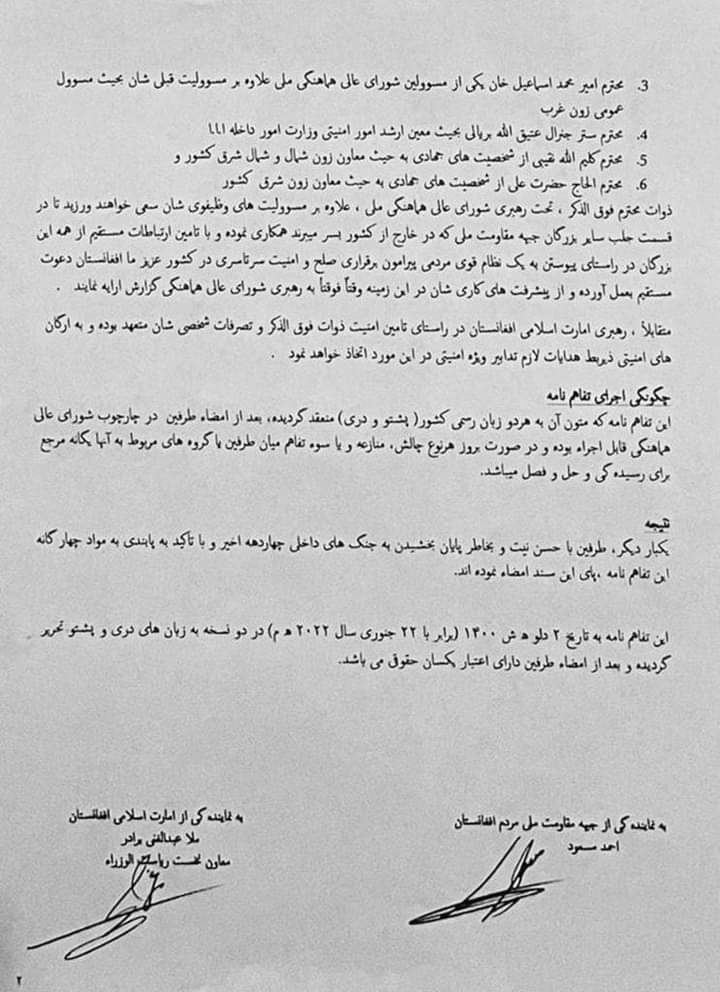 3. محترم امیر محمد اسماعیل خان یکی از مسوولین شورای عالی هماهنگی ملی علاوه بر مسوولیت قبلی شان بحیث مسوول
عمومی زون غرب
4. محترم ستر جنرال عتیق الله بریالی بحیث معین ارشد امور امنیتی وزارت امور داخله ا.ا.ا
5. محترم کلیم الله نقیبی از شخصیت های جهادی به حیث معاون زون شمال و شمال شرق کشور و
6. محترم الحاج حضرت علی از شخصیت های جهادی به حیث معاون زون شرق کشور
ذوات محترم فوق الذکر ، تحت رهبری شورای عالی هماهنگی ملی ، علاوه بر مسوولیت های وظیفوی شان سعی خواهند ورزید تا در
قسمت جلب سایر بزرگان جبهه مقاومت ملی که در خارج از کشور بسر میبرند همکاری نموده و با تامین ارتباطات مستقیم از همه این
بزرگان در راستای پیوستن به یک نظام قوی مردمی پیرامون برقراری صلح و امنیت سرتاسری در کشور عزیز ما افغانستان دعوت
مستقیم بعمل آورده و از پیشرفت های کاری شان در این زمینه وقتاً فوقتاً به رهبری شورای عالی هماهنگی گزارش ارایه نمایند .
متقابلاً ، رهبری امارت اسلامی افغانستان در راستای تامین امنیت ذوات فوق الذکر و تصرفات شخصی شان متعهد بوده و به ارگان
های امنیتی ذیربط هدایات لازم تدابیر ویژه امنیتی در این مورد اتخاذ خواهد نمود .
چگونگی اجرای تفاهم نامه
این تفاهم نامه که متون آن به هردو زبان رسمی کشور( پشتو و دری) منعقد گردیده، بعد از امضاء طرفین در چارچوب شورای عالی
هماهنگی قابل اجراء بوده و در صورت بروز هرنوع چالش، منازعه و یا سوء تفاهم میان طرفین یا گروه های مربوط به آنها یگانه مرجع
برای رسیده گی و حل و فصل میباشد.
نتیجه
یکبار دیگر، طرفین با حسن نیت و بخاطر پایان بخشیدن به جنگ های داخلی چهاردهه اخیر و با تاکید به پابندی به مواد چهارگانه
این تفاهم نامه ،پای این سند امضاء نموده اند.
این تفاهم نامه به تاریخ ۲ دلو ه ش ۱۴۰۰ (برابر با ۲۲ جنوری سال ۲۰۲۲ ه م) در دو نسخه به زبان های دری و پشتو تحریر
گردیده و بعد از امضاء طرفین دارای اعتبار یکسان حقوق می باشد.
به نماینده گی از جبهه مقاومت ملی مردم افغانستان
احمد مسعود
به نماینده گی از امارت اسلامی افغانستان
ملا عبدالغنی برادر
معاون نخست ریاست الوزراء
۲